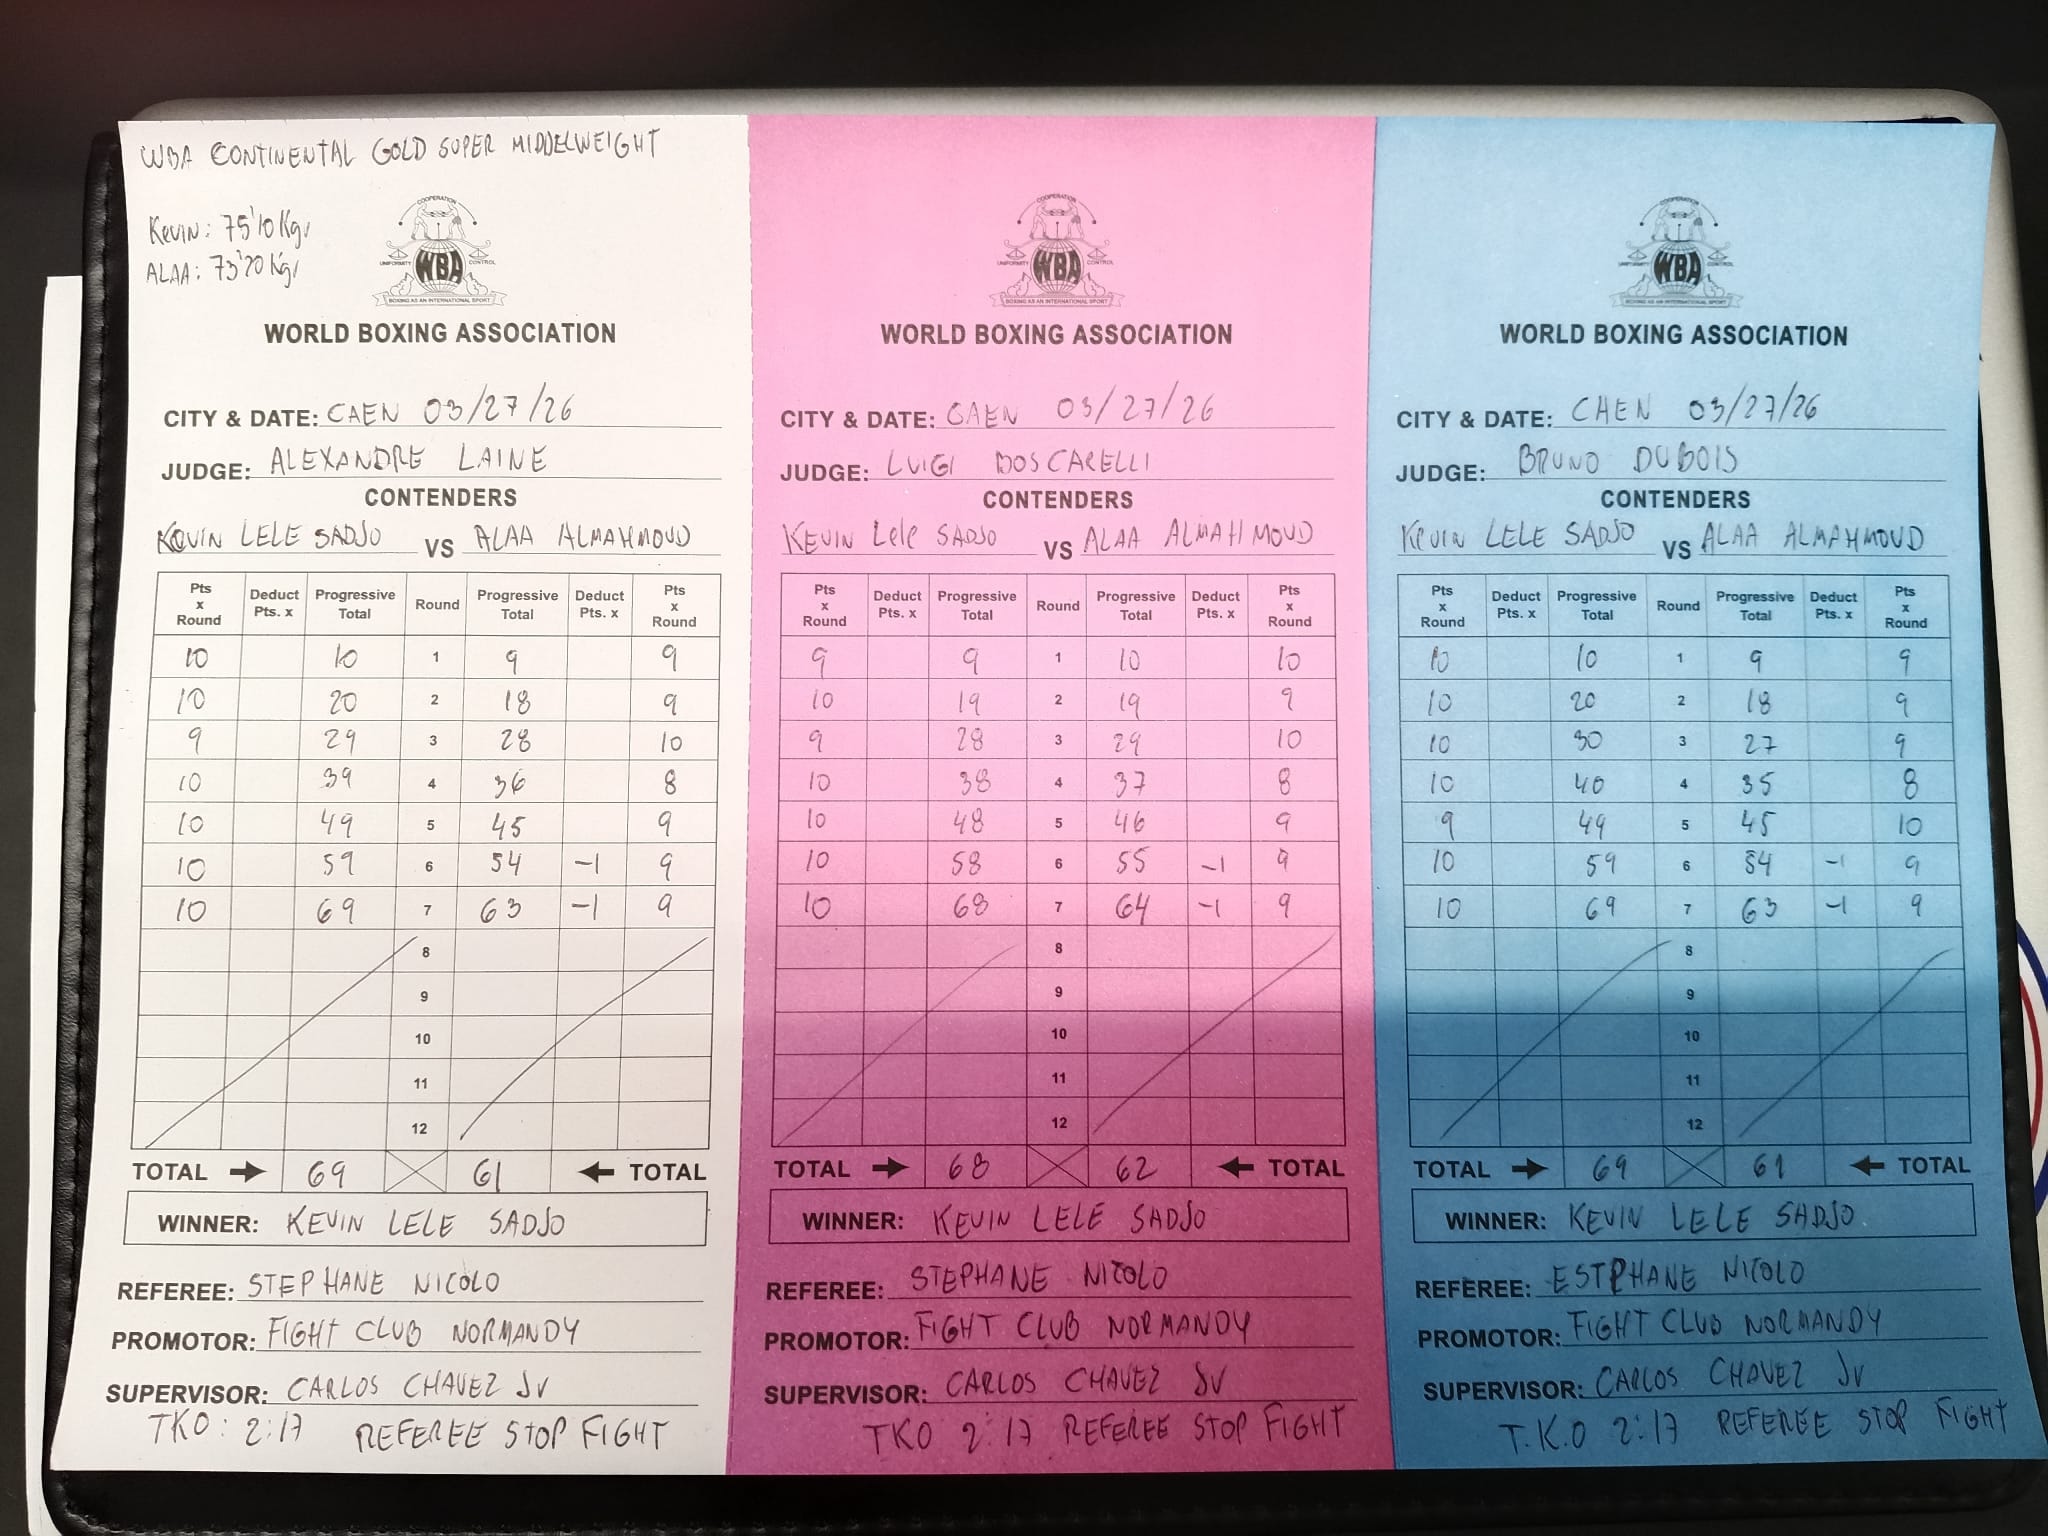 WBA CONTINENTAL GOLD SUPER MIDDELWEIGHT
KEVIN: 75'10 Kgr
ALAA: 73'20 Kgr
COOPERATION
UNIFORMITY WBA CONTROL
BOXING AS AN INTERNATIONAL SPORT
WORLD BOXING ASSOCIATION
CITY & DATE: CAEN 03/27/26
JUDGE: ALEXANDRE LAINE
CONTENDERS
KEVIN LELE SADJO VS ALAA ALMAHMOUD
Pts x Round Deduct Pts. x Progressive Total Round Progressive Total Deduct Pts. x Pts x Round
10 10 1 9 9
10 20 2 18 9
9 29 3 28 10
10 39 4 36 8
10 49 5 45 9
10 59 6 54 -1 9
10 69 7 63 -1 9
8
9
10
11
12
TOTAL 69 61 TOTAL
WINNER: KEVIN LELE SADJO
REFEREE: STEPHANE NICOLO
PROMOTOR: FIGHT CLUB NORMANDY
SUPERVISOR: CARLOS CHAVEZ Jr
TKO: 2:17 REFEREE STOP FIGHT
COOPERATION
UNIFORMITY WBA CONTROL
BOXING AS AN INTERNATIONAL SPORT
WORLD BOXING ASSOCIATION
CITY & DATE: CAEN 03/27/26
JUDGE: LUIGI BOSCARELLI
CONTENDERS
KEVIN Lele SADJO VS ALAA ALMAHMOUD
Pts x Round Deduct Pts. x Progressive Total Round Progressive Total Deduct Pts. x Pts x Round
9 9 1 10 10
10 19 2 19 9
9 28 3 29 10
10 38 4 37 8
10 48 5 46 9
10 58 6 55 -1 9
10 68 7 64 -1 9
8
9
10
11
12
TOTAL 68 62 TOTAL
WINNER: KEVIN LELE SADJO
REFEREE: STEPHANE NICOLO
PROMOTOR: FIGHT CLUB NORMANDY
SUPERVISOR: CARLOS CHAVEZ Jr
TKO 2:17 REFEREE STOP FIGHT
COOPERATION
UNIFORMITY WBA CONTROL
BOXING AS AN INTERNATIONAL SPORT
WORLD BOXING ASSOCIATION
CITY & DATE: CHEN 03/27/26
JUDGE: BRUNO DUBOIS
CONTENDERS
KEVIN LELE SADJO VS ALAA ALMAHMOUD
Pts x Round Deduct Pts. x Progressive Total Round Progressive Total Deduct Pts. x Pts x Round
10 10 1 9 9
10 20 2 18 9
10 30 3 27 9
10 40 4 35 8
9 49 5 45 10
10 59 6 54 -1 9
10 69 7 63 -1 9
8
9
10
11
12
TOTAL 69 61 TOTAL
WINNER: KEVIN LELE SADJO
REFEREE: ESTEPHANE NICOLO
PROMOTOR: FIGHT CLUB NORMANDY
SUPERVISOR: CARLOS CHAVEZ Jr
T.K.O 2:17 REFEREE STOP FIGHT